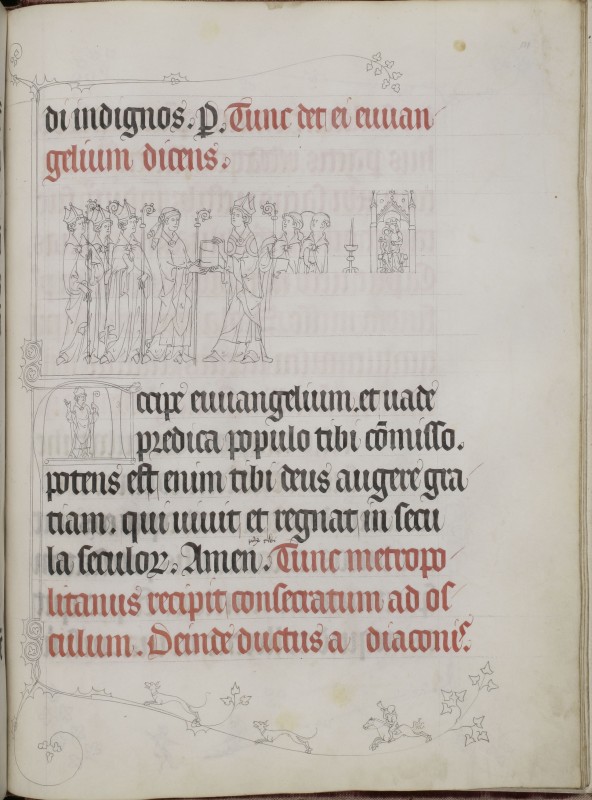 di indignos. P. Tunc det ei euuan
gelium dicens.
ccipe euuangelium. et uade
predica populo tibi cōmisso.
potens est enim tibi deus augere gra
tiam. qui uiuit et regnat in secu
la seculoꝝ. Amen. Tunc metropo
litanus recipit consecratum ad os
culum. Deinde ductus a diaconis